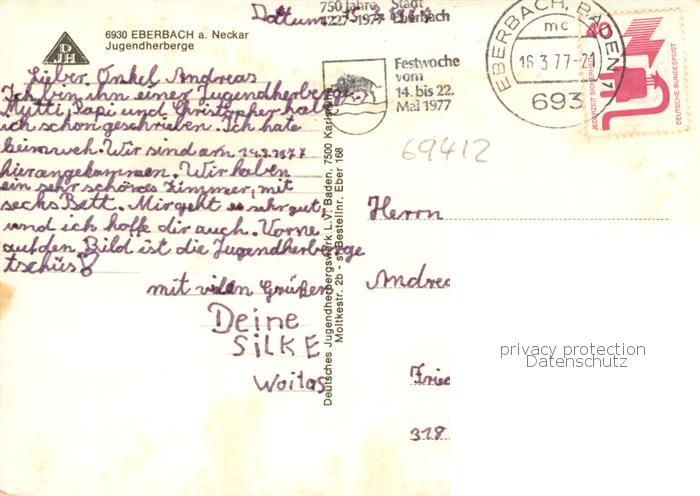 DJH
6930 EBERBACH a. Neckar
Jugendherberge
Dattum 15.3.
Lieber Onkel Andreas
Ich bin ihn einer Jugendherberge
Mutti, Papi und Christopher habe
ich schon geschrieben. Ich hate
heimweh. Wir sind am 14.3.1977
hier angekommen. Wir haben
ein sehr schönes Zimmer, mit
sechs Bett. Mir geht es sehr gut,
und ich hoffe dir auch. Vorne
auf den Bild ist die Jugendherberge
tschüs!
mit vilen Grüßen
Deine
SiLKE
Woitas
Deutsches Jugendherbergswerk L.V. Baden, 7500 Karlsruhe
Moltkestr. 2b - Bestellnr. Eber 168
750 Jahre Stadt
1227-1977 Eberbach
Festwoche
vom
14. bis 22.
Mai 1977
EBERBACH, BADEN 1
mc
16.3.77-21
693
40
JEDERZEIT SICHERHEIT
DEUTSCHE BUNDESPOST
69412
Herrn
Andrea
Frie
318
privacy protection
Datenschutz